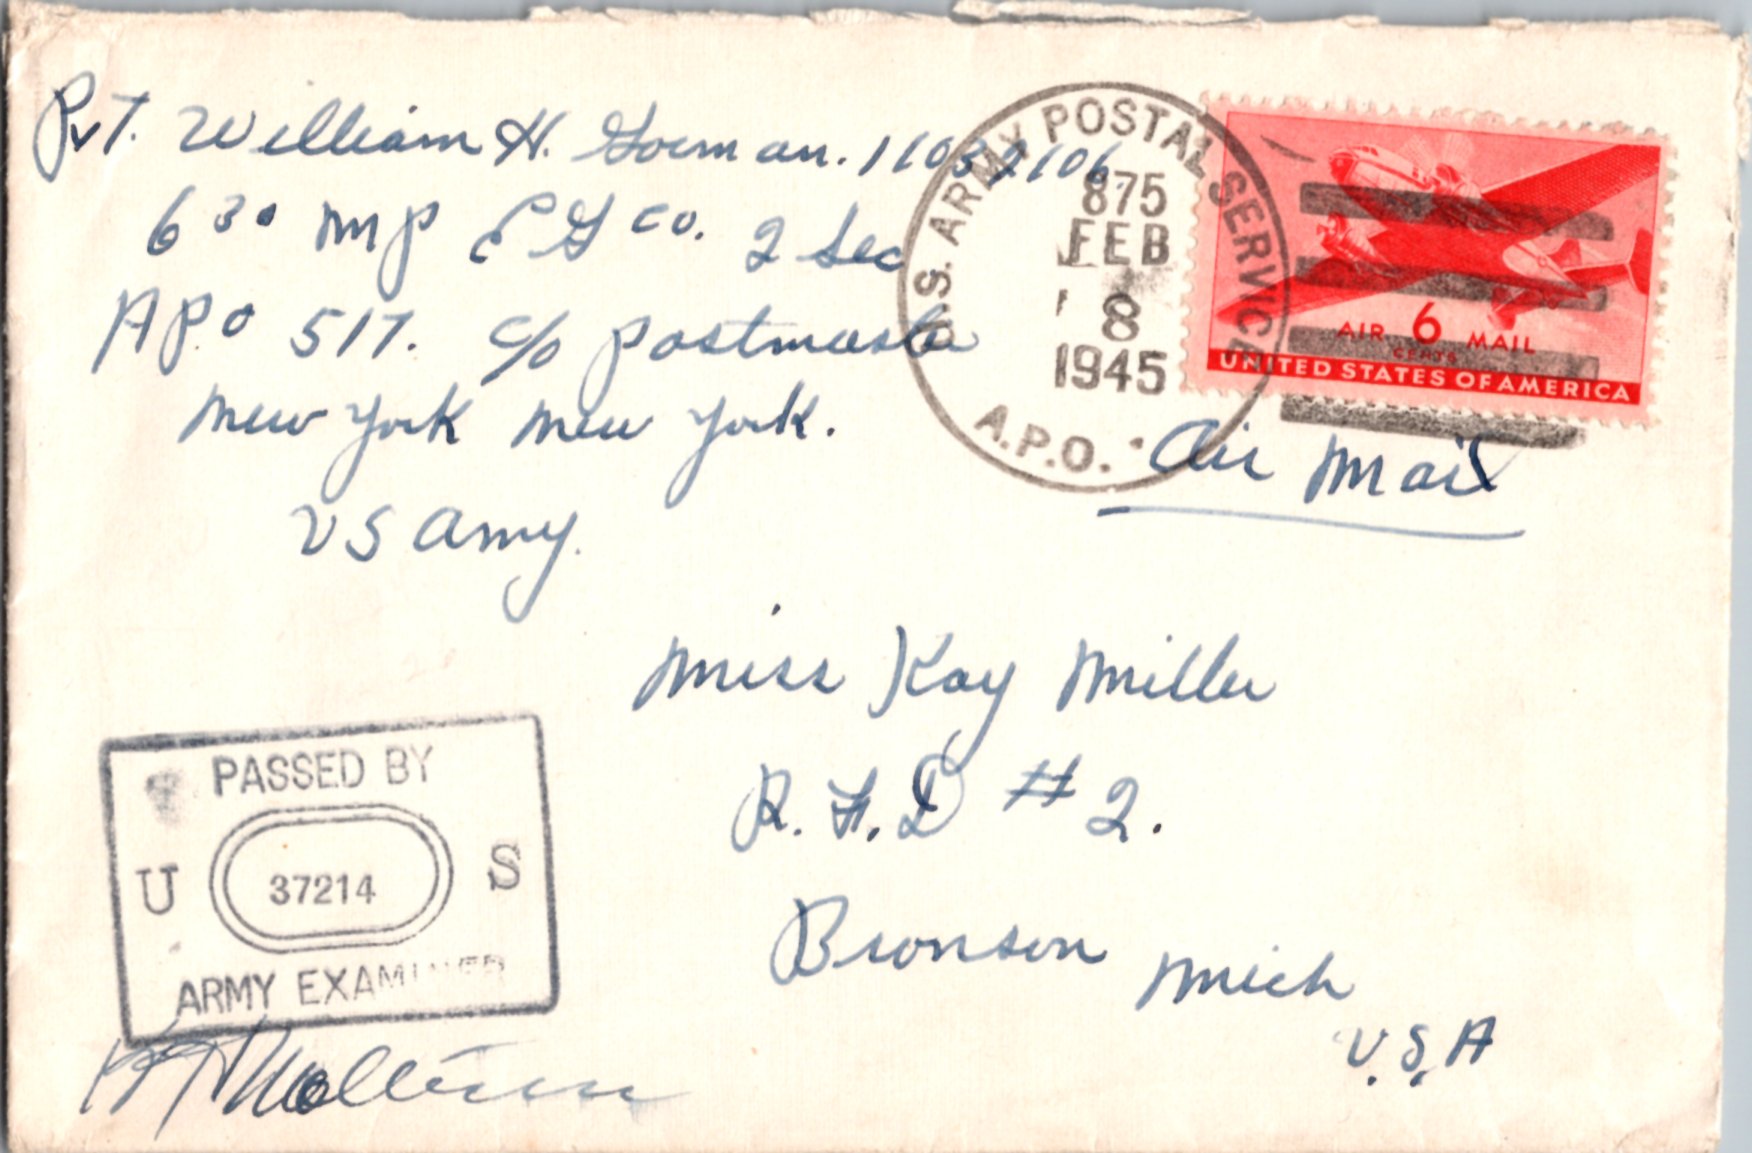 Pvt. William H. Gorman. 11032106
630 MP EG Co. 2 Sec
A.P.O 517. c/o Postmaster
New York New York.
US Army.
U.S. ARMY POSTAL SERVICE
875
FEB
8
1945
A.P.O.
AIR 6 MAIL
CENTS
UNITED STATES OF AMERICA
Air Mail
Miss Kay Miller
R.F.D #2.
Bronson Mich
U.S.A
PASSED BY
U 37214 S
ARMY EXAMINER